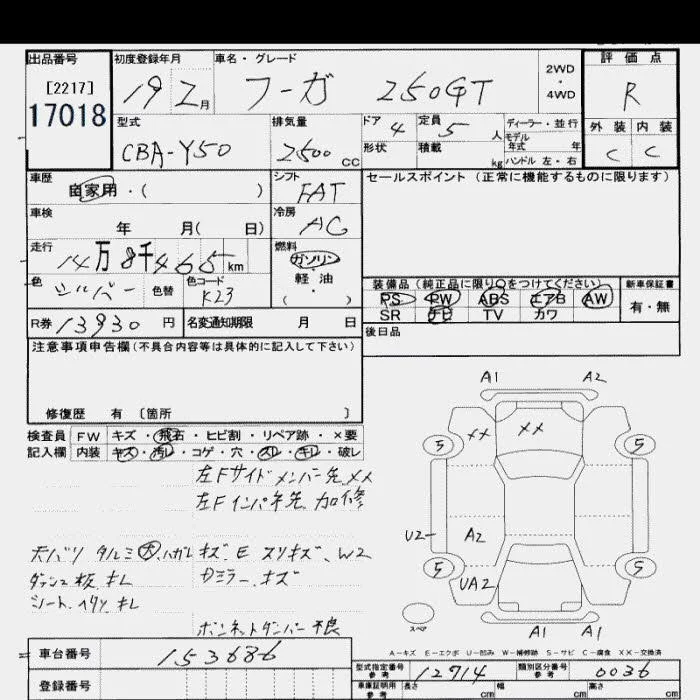 出品番号 初度登録年月 車名・グレード 2WD・4WD 評価点
[2217]
17018 19 2月 フーガ 250GT R
型式 排気量 ドア 4 定員 5人 ディーラー・並行 外装 内装
CBA-Y50 2500cc 形状 積載 kg モデル年式 年 C C
ハンドル 左・右
車歴 自家用・( ) シフト FAT セールスポイント (正常に機能するものに限ります)
車検 年 月( 日) 冷房 AC
走行 14万8千465km 燃料 ガソリン 軽・油 ( ・ )
色 シルバー 色替 色コード K23 装備品 (純正品に限り○をつけてください) 新車保証書
PS PW ABS エアB AW 有・無
R券 13930円 名変通知期限 月 日 SR ナビ TV カワ
注意事項申告欄 (不具合内容等は具体的に記入して下さい) 後日品
修復歴 有 〔箇所 〕
検査員 FW キズ・飛石・ヒビ割・リペア跡・×要
記入欄 内装 キズ・汚レ・コゲ・穴・スレ・キレ・破レ
左Fサイドメンバー先 ××
左Fインパネ先 加修
天バリ タルミ大 ハガレ キズ、E スリキズ、W2
ダッシュ板 キレ
ミラー、キズ
シート
ボンネットダンパー不良
A1 A2
×× ××
5 5
U2 A2
5 5
UA2
A1 A1
スペア
A-キズ E-エクボ U-凹み W-補修跡 S-サビ C-腐食 ××-交換済
車台番号 153686 型式指定番号 参考 12714 類別区分番号 参考 0036
登録番号 車庫証明用 参考 長さ cm 幅 cm 高さ cm